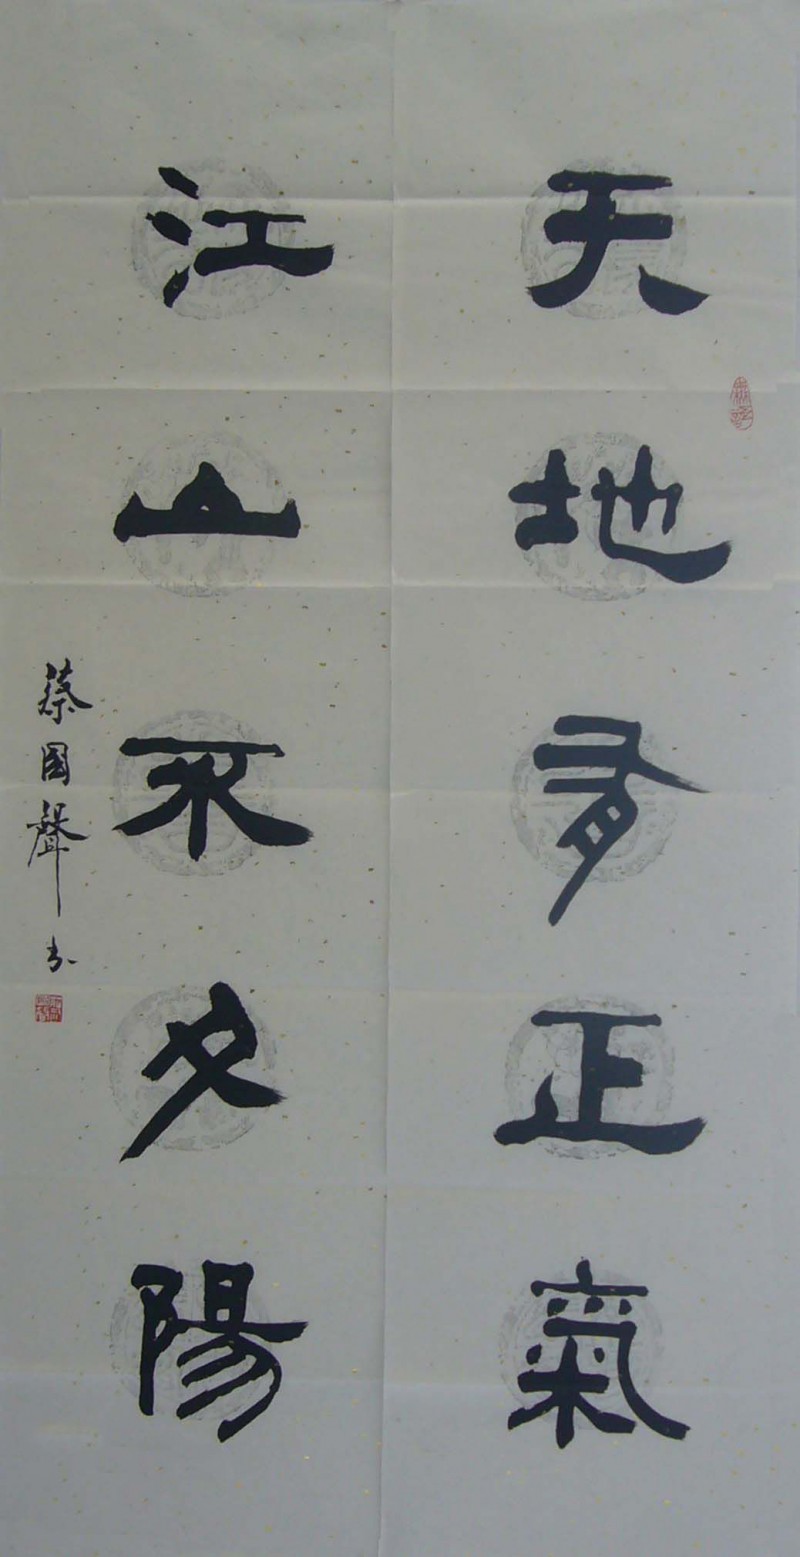 天地有正氣
江山不夕陽
蔡國聲书